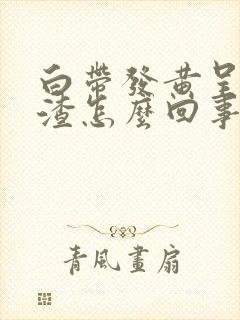 白帶發黃呈
渣怎麼回事
青風畫扇